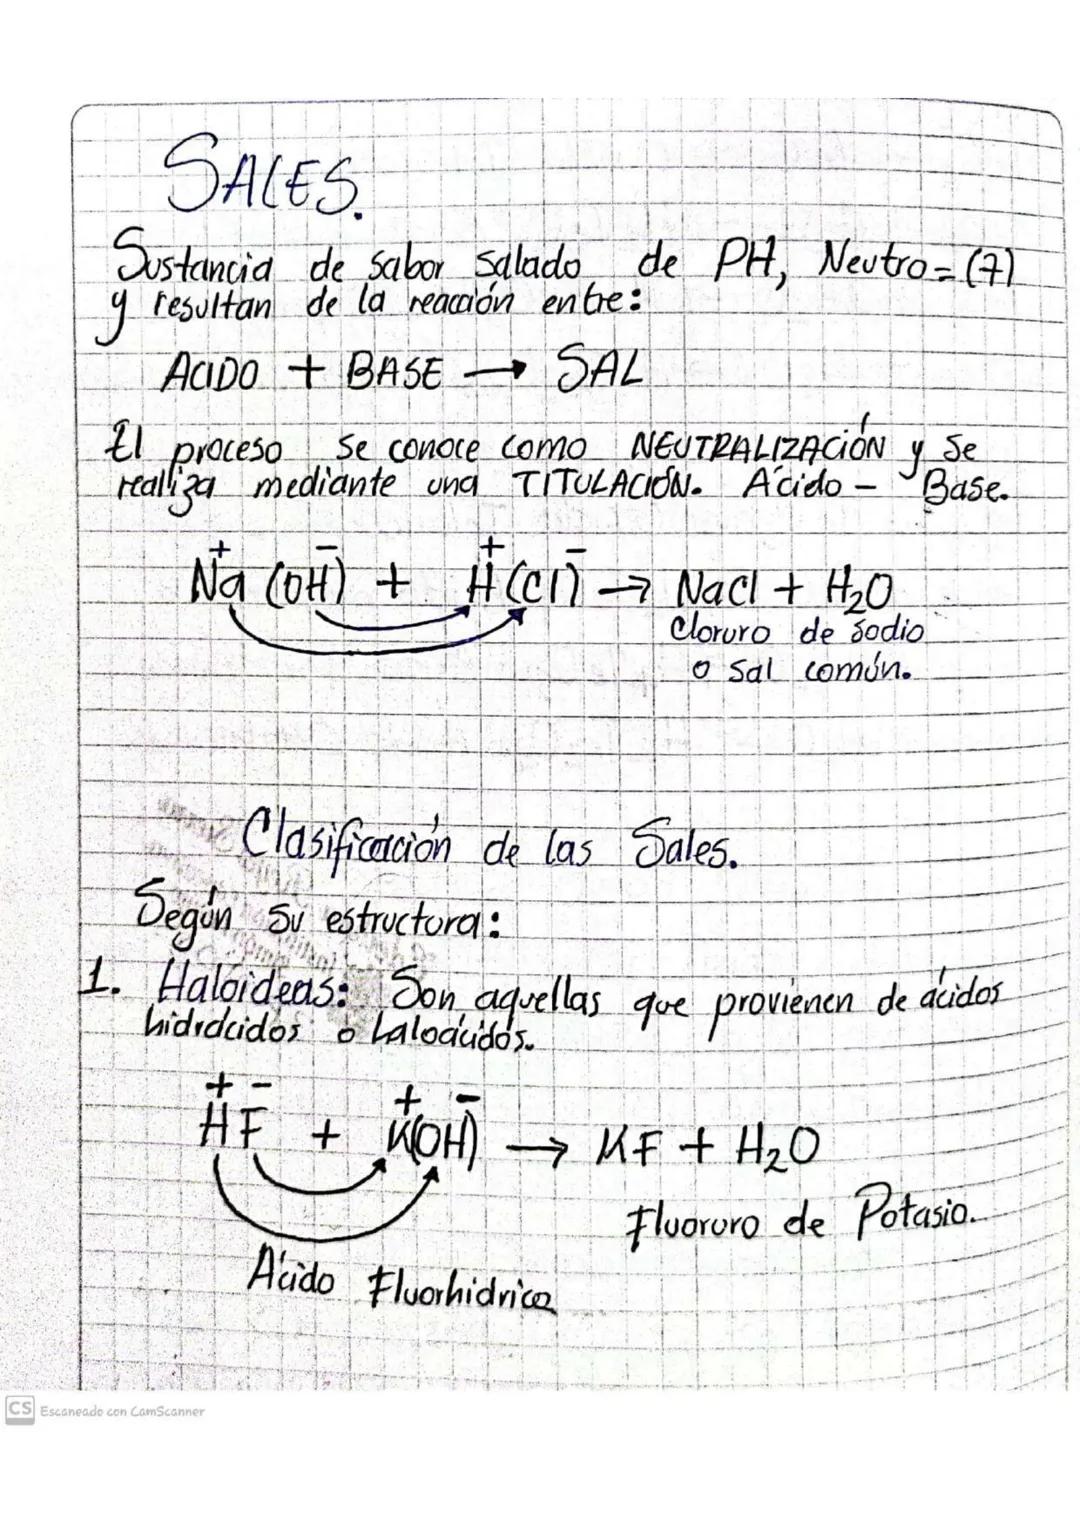 SALES.
Sustancia de sabor salado de PH, Neutro = (7)
y resultan de la reacción entre:
ACIDO + BASE → SAL
El proceso se conoce como NEUTRALIZACIÓN y se
realiza mediante una TITULACIÓN. Ácido - Base.
Na⁺ (OH)⁻ + H⁺(Cl)⁻ → NaCl + H₂O
Cloruro de sodio
o sal común.
Clasificación de las Sales.
Según su estructura:
1. Haloideas: Son aquellas que provienen de ácidos
hidrácidos o haloácidos.
H⁺F⁻ + K⁺(OH)⁻ → KF + H₂O
Fluoruro de Potasio.
Ácido Fluorhidrico
CS Escaneado con CamScanner